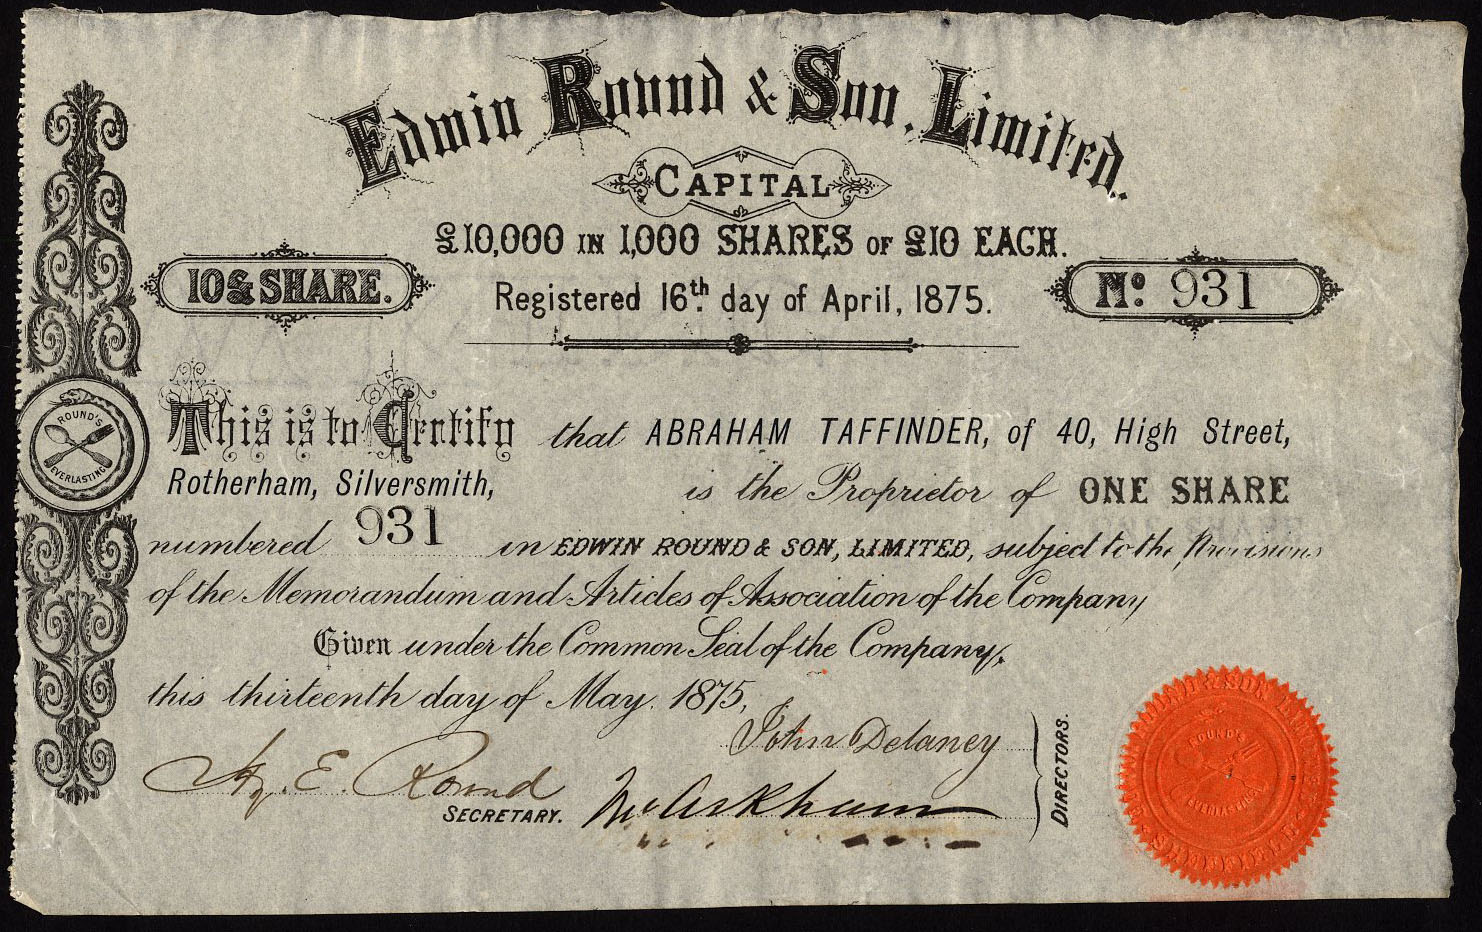 Edwin Round & Son, Limited.
CAPITAL
£10,000 IN 1,000 SHARES OF £10 EACH.
10£ SHARE.
Registered 16th day of April, 1875.
No. 931
This is to Certify that ABRAHAM TAFFINDER, of 40, High Street,
Rotherham, Silversmith, is the Proprietor of ONE SHARE
numbered 931 in EDWIN ROUND & SON, LIMITED, subject to the Provisions
of the Memorandum and Articles of Association of the Company
Given under the Common Seal of the Company,
this thirteenth day of May 1875,
John Delaney
E. Round
SECRETARY.
Markham
DIRECTORS.
ROUND'S
EVERLASTING
ROUND & SON LIMITED
ROUND'S
EVERLASTING
SHEFFIELD